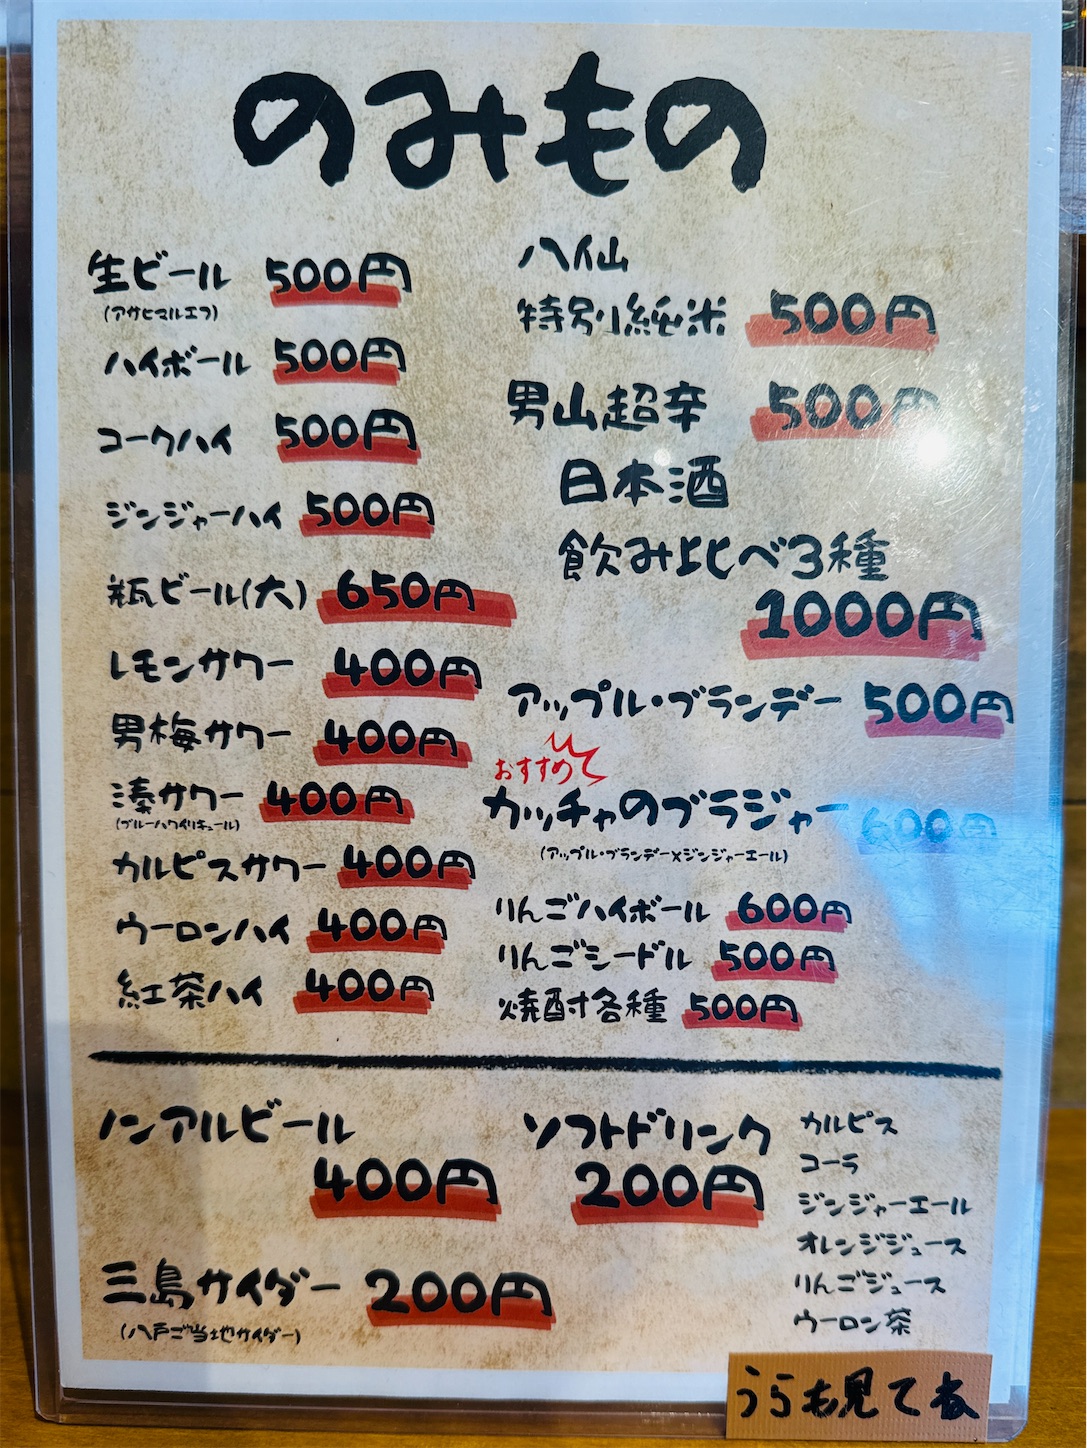 のみもの
生ビール 500円
(アサヒマルエフ)
ハイボール 500円
コークハイ 500円
ジンジャーハイ 500円
瓶ビール(大) 650円
レモンサワー 400円
男梅サワー 400円
湊サワー 400円
(ブルーハワイリキュール)
カルピスサワー 400円
ウーロンハイ 400円
紅茶ハイ 400円
八仙
特別純米 500円
男山超辛 500円
日本酒
飲み比べ3種
1000円
アップル・ブランデー 500円
おすすめ
カッチャのブラジャー 600円
(アップル・ブランデー×ジンジャーエール)
りんごハイボール 600円
りんごシードル 500円
焼酎各種 500円
ノンアルビール
400円
三島サイダー 200円
(八戸ご当地サイダー)
ソフトドリンク
200円
カルピス
コーラ
ジンジャーエール
オレンジジュース
りんごジュース
ウーロン茶
うらも見てね